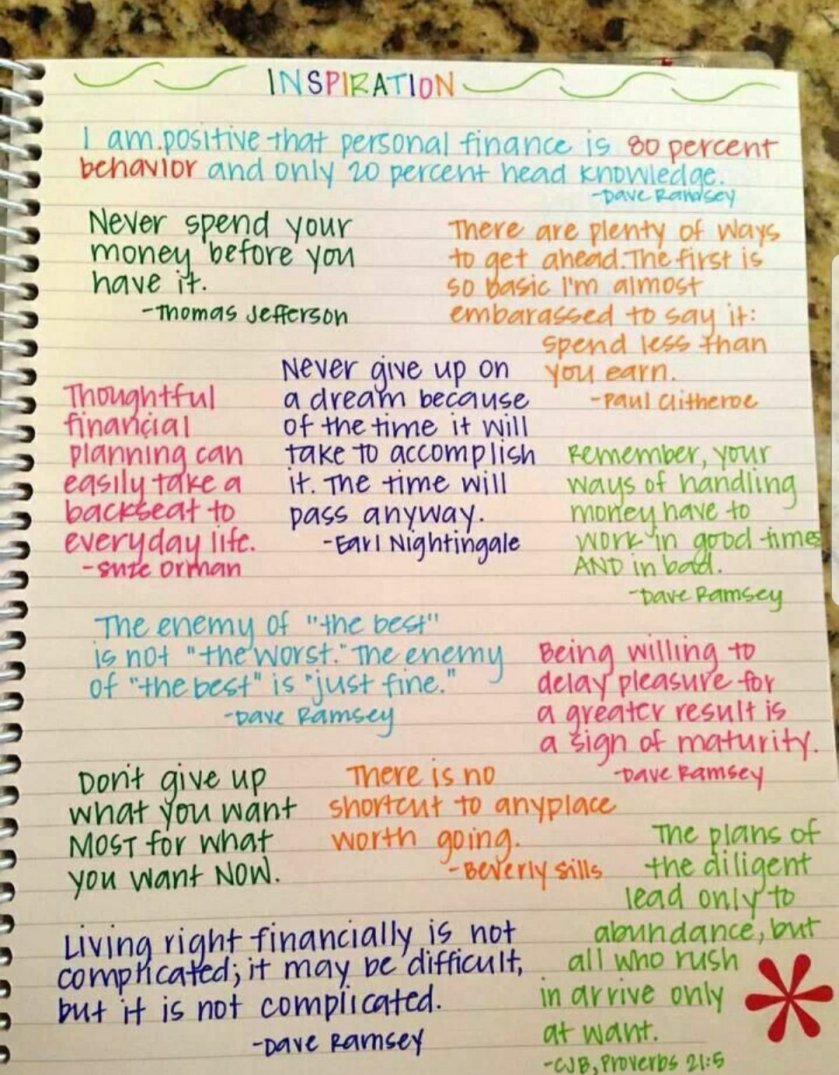 INSPIRATION
I am positive that personal finance is 80 percent
behavior and only 20 percent head knowledge.
-Dave Ramsey
Never spend your
money before you
have it.
-Thomas Jefferson
There are plenty of ways
to get ahead. The first is
so basic I'm almost
embarassed to say it:
spend less than
you earn.
-Paul Clitheroe
Thoughtful
financial
planning can
easily take a
backseat to
everyday life.
-Suze Orman
Never give up on
a dream because
of the time it will
take to accomplish
it. The time will
pass anyway.
-Earl Nightingale
Remember, your
ways of handling
money have to
work in good times
AND in bad.
-Dave Ramsey
The enemy of "the best"
is not "the worst." The enemy
of "the best" is "just fine."
-Dave Ramsey
Being willing to
delay pleasure for
a greater result is
a sign of maturity.
-Dave Ramsey
Don't give up
what you want
MOST for what
you want NOW.
There is no
shortcut to anyplace
worth going.
-Beverly Sills
The plans of
the diligent
lead only to
abundance, but
all who rush
in arrive only
at want.
-CJB, Proverbs 21:5
Living right financially is not
complicated; it may be difficult,
but it is not complicated.
-Dave Ramsey